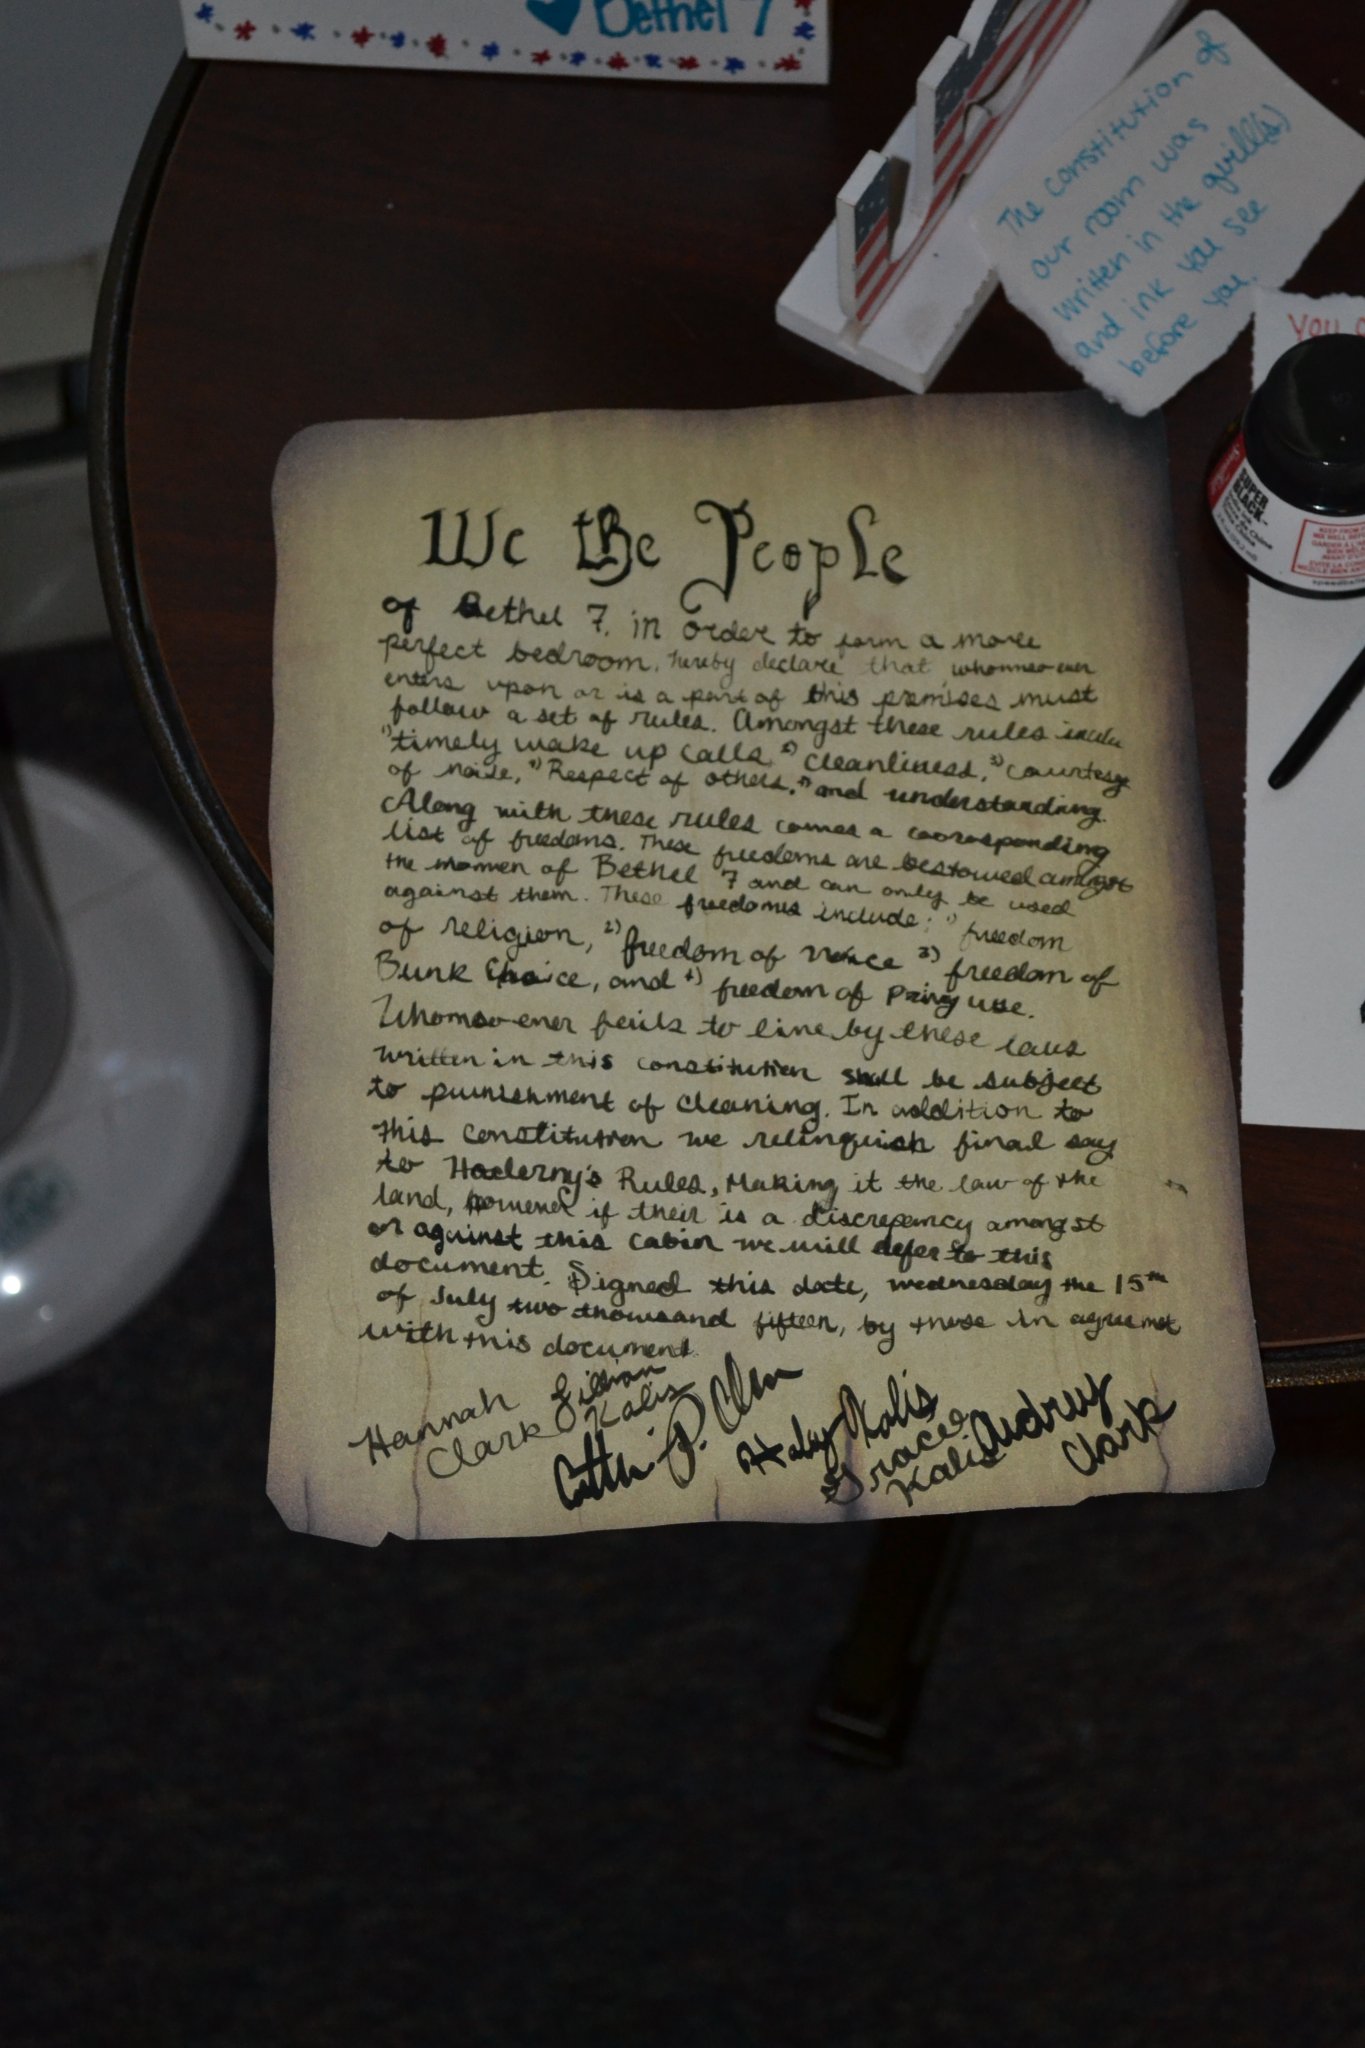 Bethel 7
The constitution of
our room was
written in the quill(s)
and ink you see
before you.
You
SUPER
BLACK
We the People
of Bethel 7, in order to form a more
perfect bedroom, hereby declare that whomsoever
enters upon or is a part of this premises must
follow a set of rules. Amongst these rules include
1) timely wake up calls, 2) cleanliness, 3) courtesy
of noise, 4) Respect of others, 5) and understanding.
Along with these rules comes a corrosponding
list of freedoms. These freedoms are bestowed amongst
the women of Bethel 7 and can only be used
against them. These freedoms include: 1) freedom
of religion, 2) freedom of voice 3) freedom of
Bunk Choice, and 4) freedom of Privy use.
Whomsoever fails to live by these laws
written in this constitution shall be subject
to punishment of cleaning. In addition to
this constitution we relinquish final say
to Rules, Making it the law of the
land, however if their is a discrepancy amongst
or against this cabin we will defer to this
document. Signed this date, wednesday the 15th
of July two thousand fifteen, by those in agreement
with this document.
Hannah Clark
Jillian Kalis
Haley Kalis
Gracee Kalis
Audrey Clark